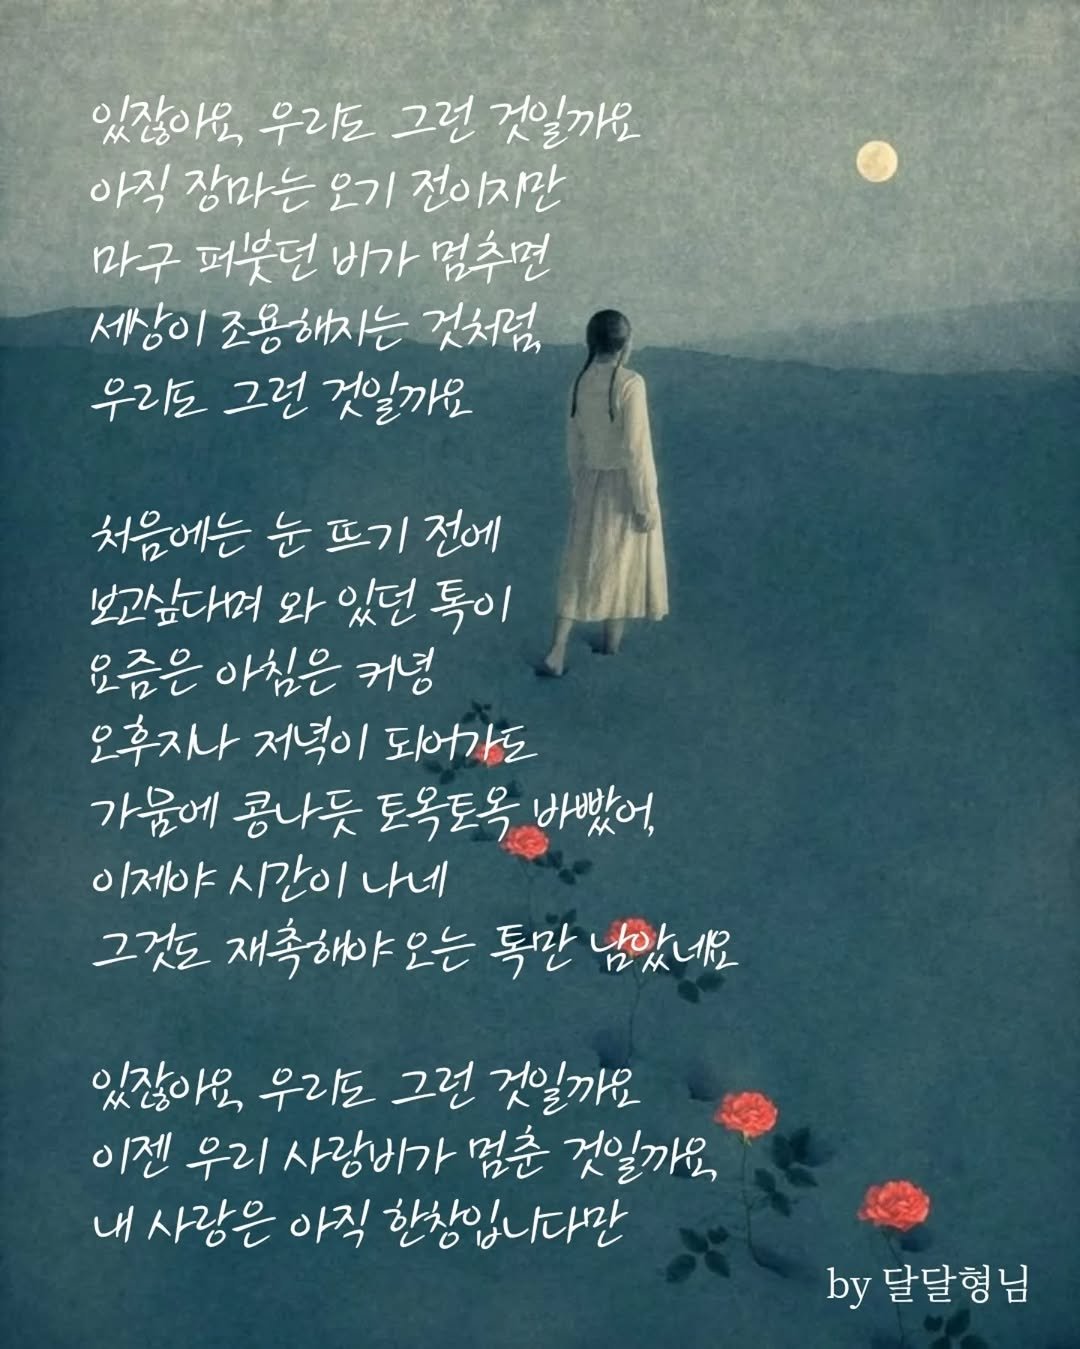 있잖아요, 우리도 그런 것일까요
아직 장마는 오기 전이지만
마구 퍼붓던 비가 멈추면
세상이 조용해지는 것처럼,
우리도 그런 것일까요
처음에는 눈 뜨기 전에
보고싶다며 와 있던 톡이
요즘은 아침은 커녕
오후지나 저녁이 되어가도
가뭄에 콩나듯 토옥토옥 바빴어,
이제야 시간이 나네
그것도 재촉해야 오는 톡만 남았네요
있잖아요, 우리도 그런 것일까요
이젠 우리 사랑비가 멈춘 것일까요,
내 사랑은 아직 한창입니다만
by 달달형님